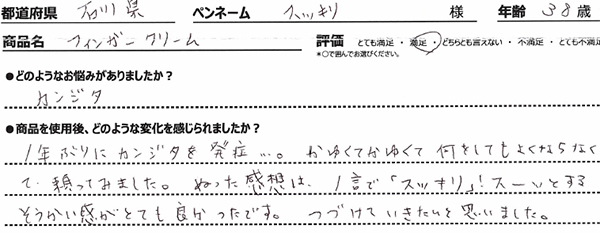 都道府県 石川県 ペンネーム スッキリ 様 年齢 38歳
商品名 フィンガークリーム 評価 とても満足 ・ 満足 ・ どちらとも言えない ・ 不満足 ・ とても不満
*○で囲んでお選びください。
●どのようなお悩みがありましたか？
カンジタ
●商品を使用後、どのような変化を感じられましたか？
1年ぶりにカンジタを発症…。かゆくてかゆくて何をしてもよくならなく
て、頼ってみました。ぬった感想は、1言で「スッキリ」！スーっとする
そうかい感がとても良かったです。つづけていきたいと思いました。